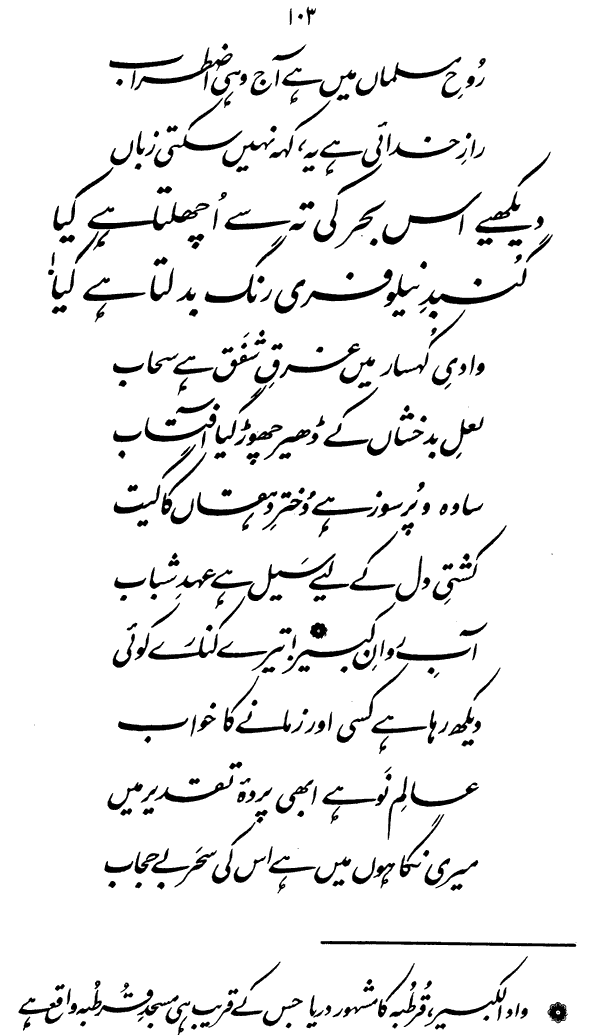 ۱۰۳
رُوحِ مسلماں میں ہے آج وہی اضطراب
رازِ خدائی ہے یہ، کہہ نہیں سکتی زباں
دیکھیے اس بحر کی تہ سے اُچھلتا ہے کیا
گنبدِ نیلوفری رنگ بدلتا ہے کیا!
وادیِ کُہسار میں غرقِ شَفَق ہے سحاب
لعلِ بدخشاں کے ڈھیر چھوڑ گیا آفتاب
سادہ و پُرسوز ہے دُخترِ دہقاں کا گیت
کشتیِ دل کے لیے سَیل ہے عہدِ شباب
آبِ روانِ کبیر! تیرے کنارے کوئی
دیکھ رہا ہے کسی اور زمانے کا خواب
عالمِ نَو ہے ابھی پردۂ تقدیر میں
میری نگاہوں میں ہے اس کی سحَر بے حجاب
واد الکبیر، قُرطُبہ کا مشہور دریا جس کے قریب ہی مسجدِ قُرطُبہ واقع ہے